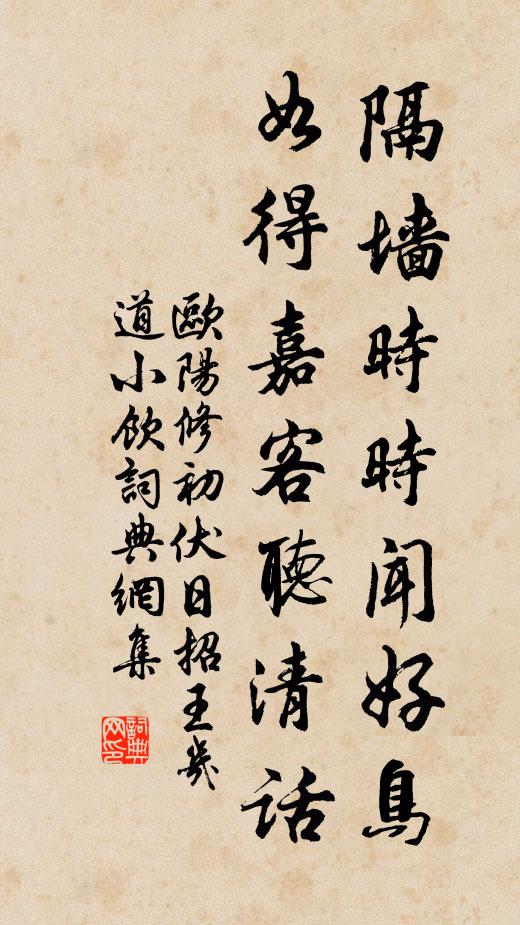 隔墙時時聞好鳥
如得嘉客聽清話
歐陽修初伏日招王幾
道小飲詞典網集
詞典
网印